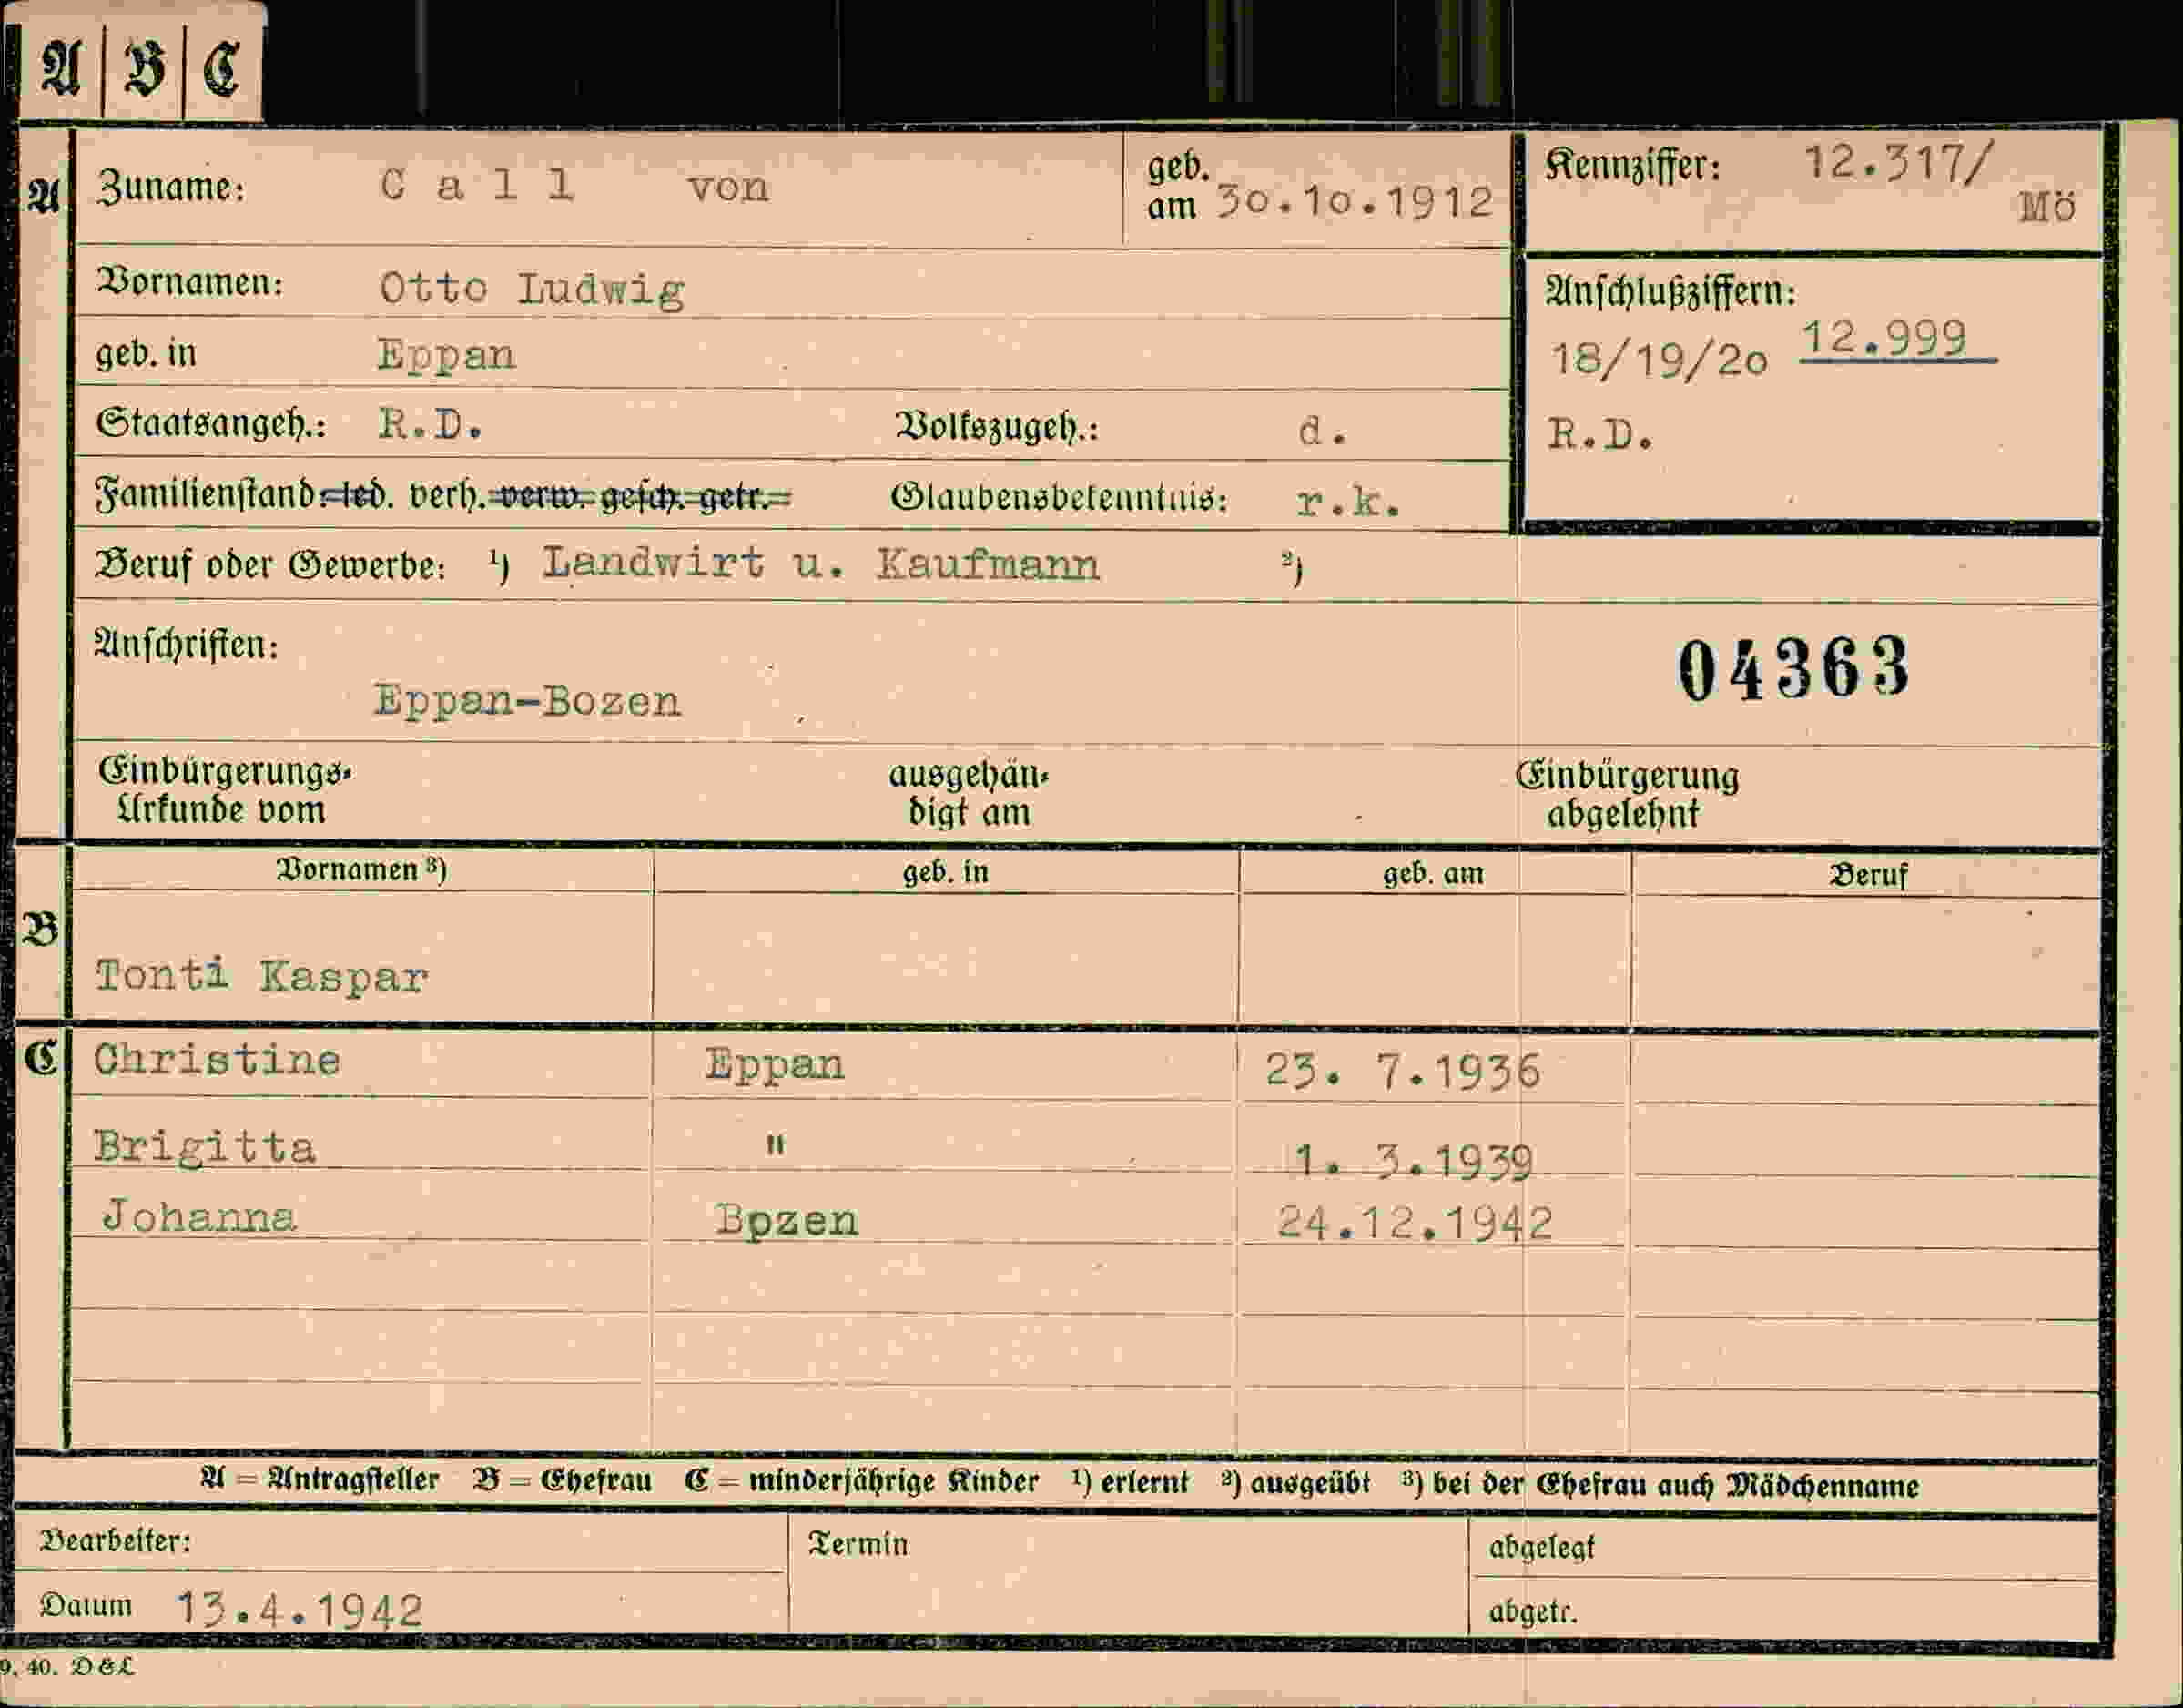 A B C
A Zuname: C a l l von geb. am 30.10.1912 Kennziffer: 12.317/
Mö
Vornamen: Otto Ludwig
Anschlußziffern:
geb. in Eppan
18/19/20 12.999
Staatsangeh.: R.D. Volkszugeh.: d.
R.D.
Familienstand: led. verh. verw. gesch. getr. Glaubensbekenntnis: r.k.
Beruf oder Gewerbe: ¹) Landwirt u. Kaufmann ²)
Anschriften:
04363
Eppan-Bozen
Einbürgerungs-
Urkunde vom
ausgehän-
digt am
Einbürgerung
abgelehnt
Vornamen ³) geb. in geb. am Beruf
B
Tonti Kaspar
C Christine Eppan 23. 7.1936
Brigitta " 1. 3.1939
Johanna Bozen 24.12.1942
A = Antragsteller B = Ehefrau C = minderjährige Kinder ¹) erlernt ²) ausgeübt ³) bei der Ehefrau auch Mädchenname
Bearbeiter: Termin abgelegt
Datum 13.4.1942 abgetr.
9. 40. D & L